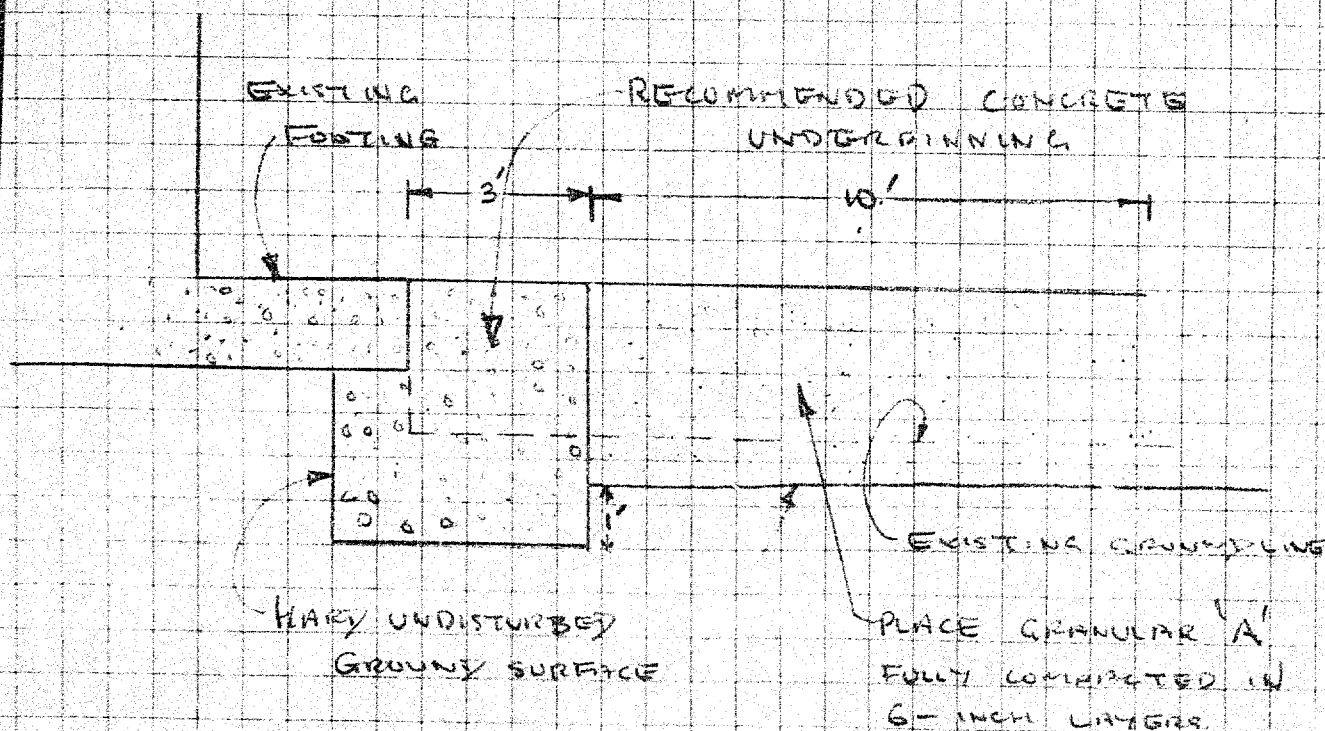 EXISTING
FOOTING
RECOMMENDED CONCRETE
UNDERPINNING
3'
10'
1'
EXISTING GROUNDLINE
HARD UNDISTURBED
GROUND SURFACE
PLACE GRANULAR 'A'
FULLY COMPACTED IN
6-INCH LAYERS